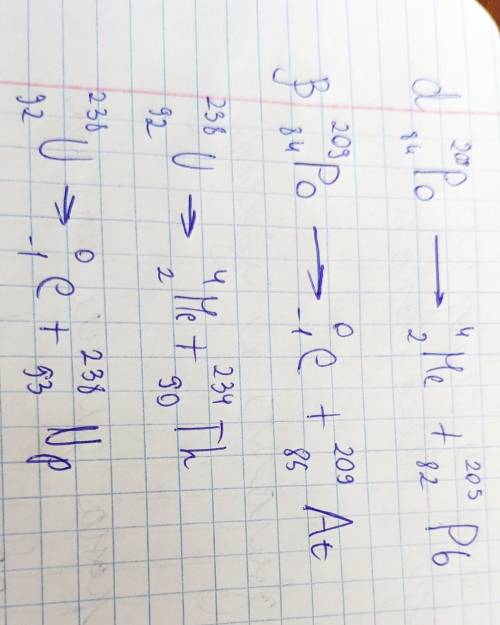 α ²⁰⁹₈₄Po → ⁴₂He + ²⁰⁵₈₂Pb
β ²⁰⁹₈₄Po → ⁰₋₁e + ²⁰⁹₈₅At
²³⁸₉₂U → ⁴₂He + ²³⁴₉₀Th
²³⁸₉₂U → ⁰₋₁e + ²³⁸₉₃Np